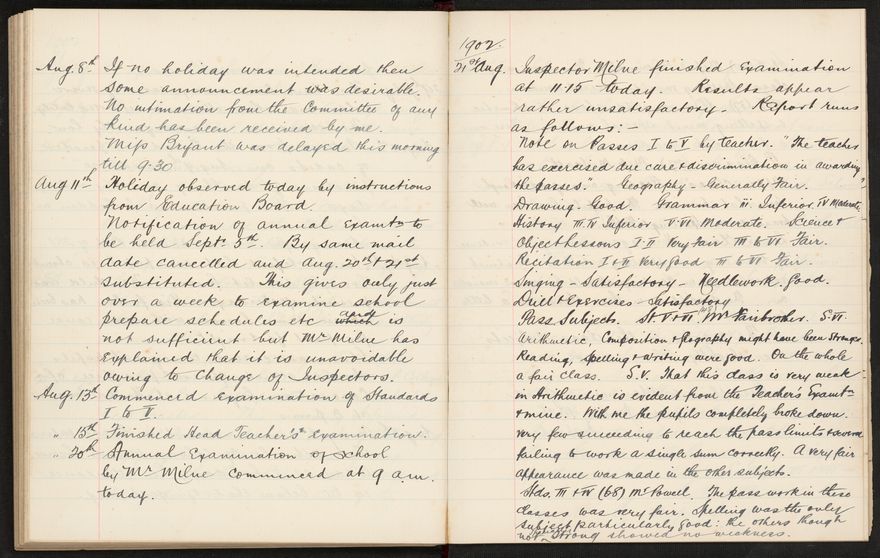 Aug. 8th If no holiday was intended then
some announcement was desirable.
No intimation from the Committee of any
kind has been received by me.
Miss Bryant was delayed this morning
till 9-30
Aug 11th Holiday observed today by instructions
from Education Board.
Notification of annual Examtn to
be held Septr 5th. By same mail
date cancelled and Aug. 20th & 21st
substituted. This gives only just
over a week to examine school
prepare schedules etc and is
not sufficient but Mr Milne has
explained that it is unavoidable
owing to change of Inspectors.
Aug. 13th Commenced Examination of Standards
I to V.
" 15th Finished Head Teacher's Examination.
" 20th Annual Examination of School
by Mr Milne commenced at 9 a.m.
today.
1902.
21st Aug. Inspector Milne finished Examination
at 11-15 today. Results appear
rather unsatisfactory. Report runs
as follows:-
Note on Passes I to V by teacher. "The teacher
has exercised due care & discrimination in awarding
the passes." Geography - Generally Fair.
Drawing - Good. Grammar iii Inferior. IV Moderate.
History III. IV Inferior V-VI Moderate. Science &
Object Lessons I-II Very Fair III to VI Fair.
Recitation I & II Very good III to VI Fair.
Singing - Satisfactory - Needlework. Good.
Drill & Exercises - Satisfactory
Pass Subjects. St V & VI Mr Fairbrother. S. VI
Arithmetic, Composition & Geography might have been stronger.
Reading, Spelling & writing were good. On the whole
a fair class. S.V. That this class is very weak
in Arithmetic is evident from the Teacher's Examtn
& mine. With me the pupils completely broke down
very few succeeding to reach the pass limits & several
failing to work a single sum correctly. A very fair
appearance was made in the other subjects.
Stds. III & IV (68) Mr Powell. The pass work in these
classes was very fair. Spelling was the only
subject particularly good: the others though
not strong showed no weakness.